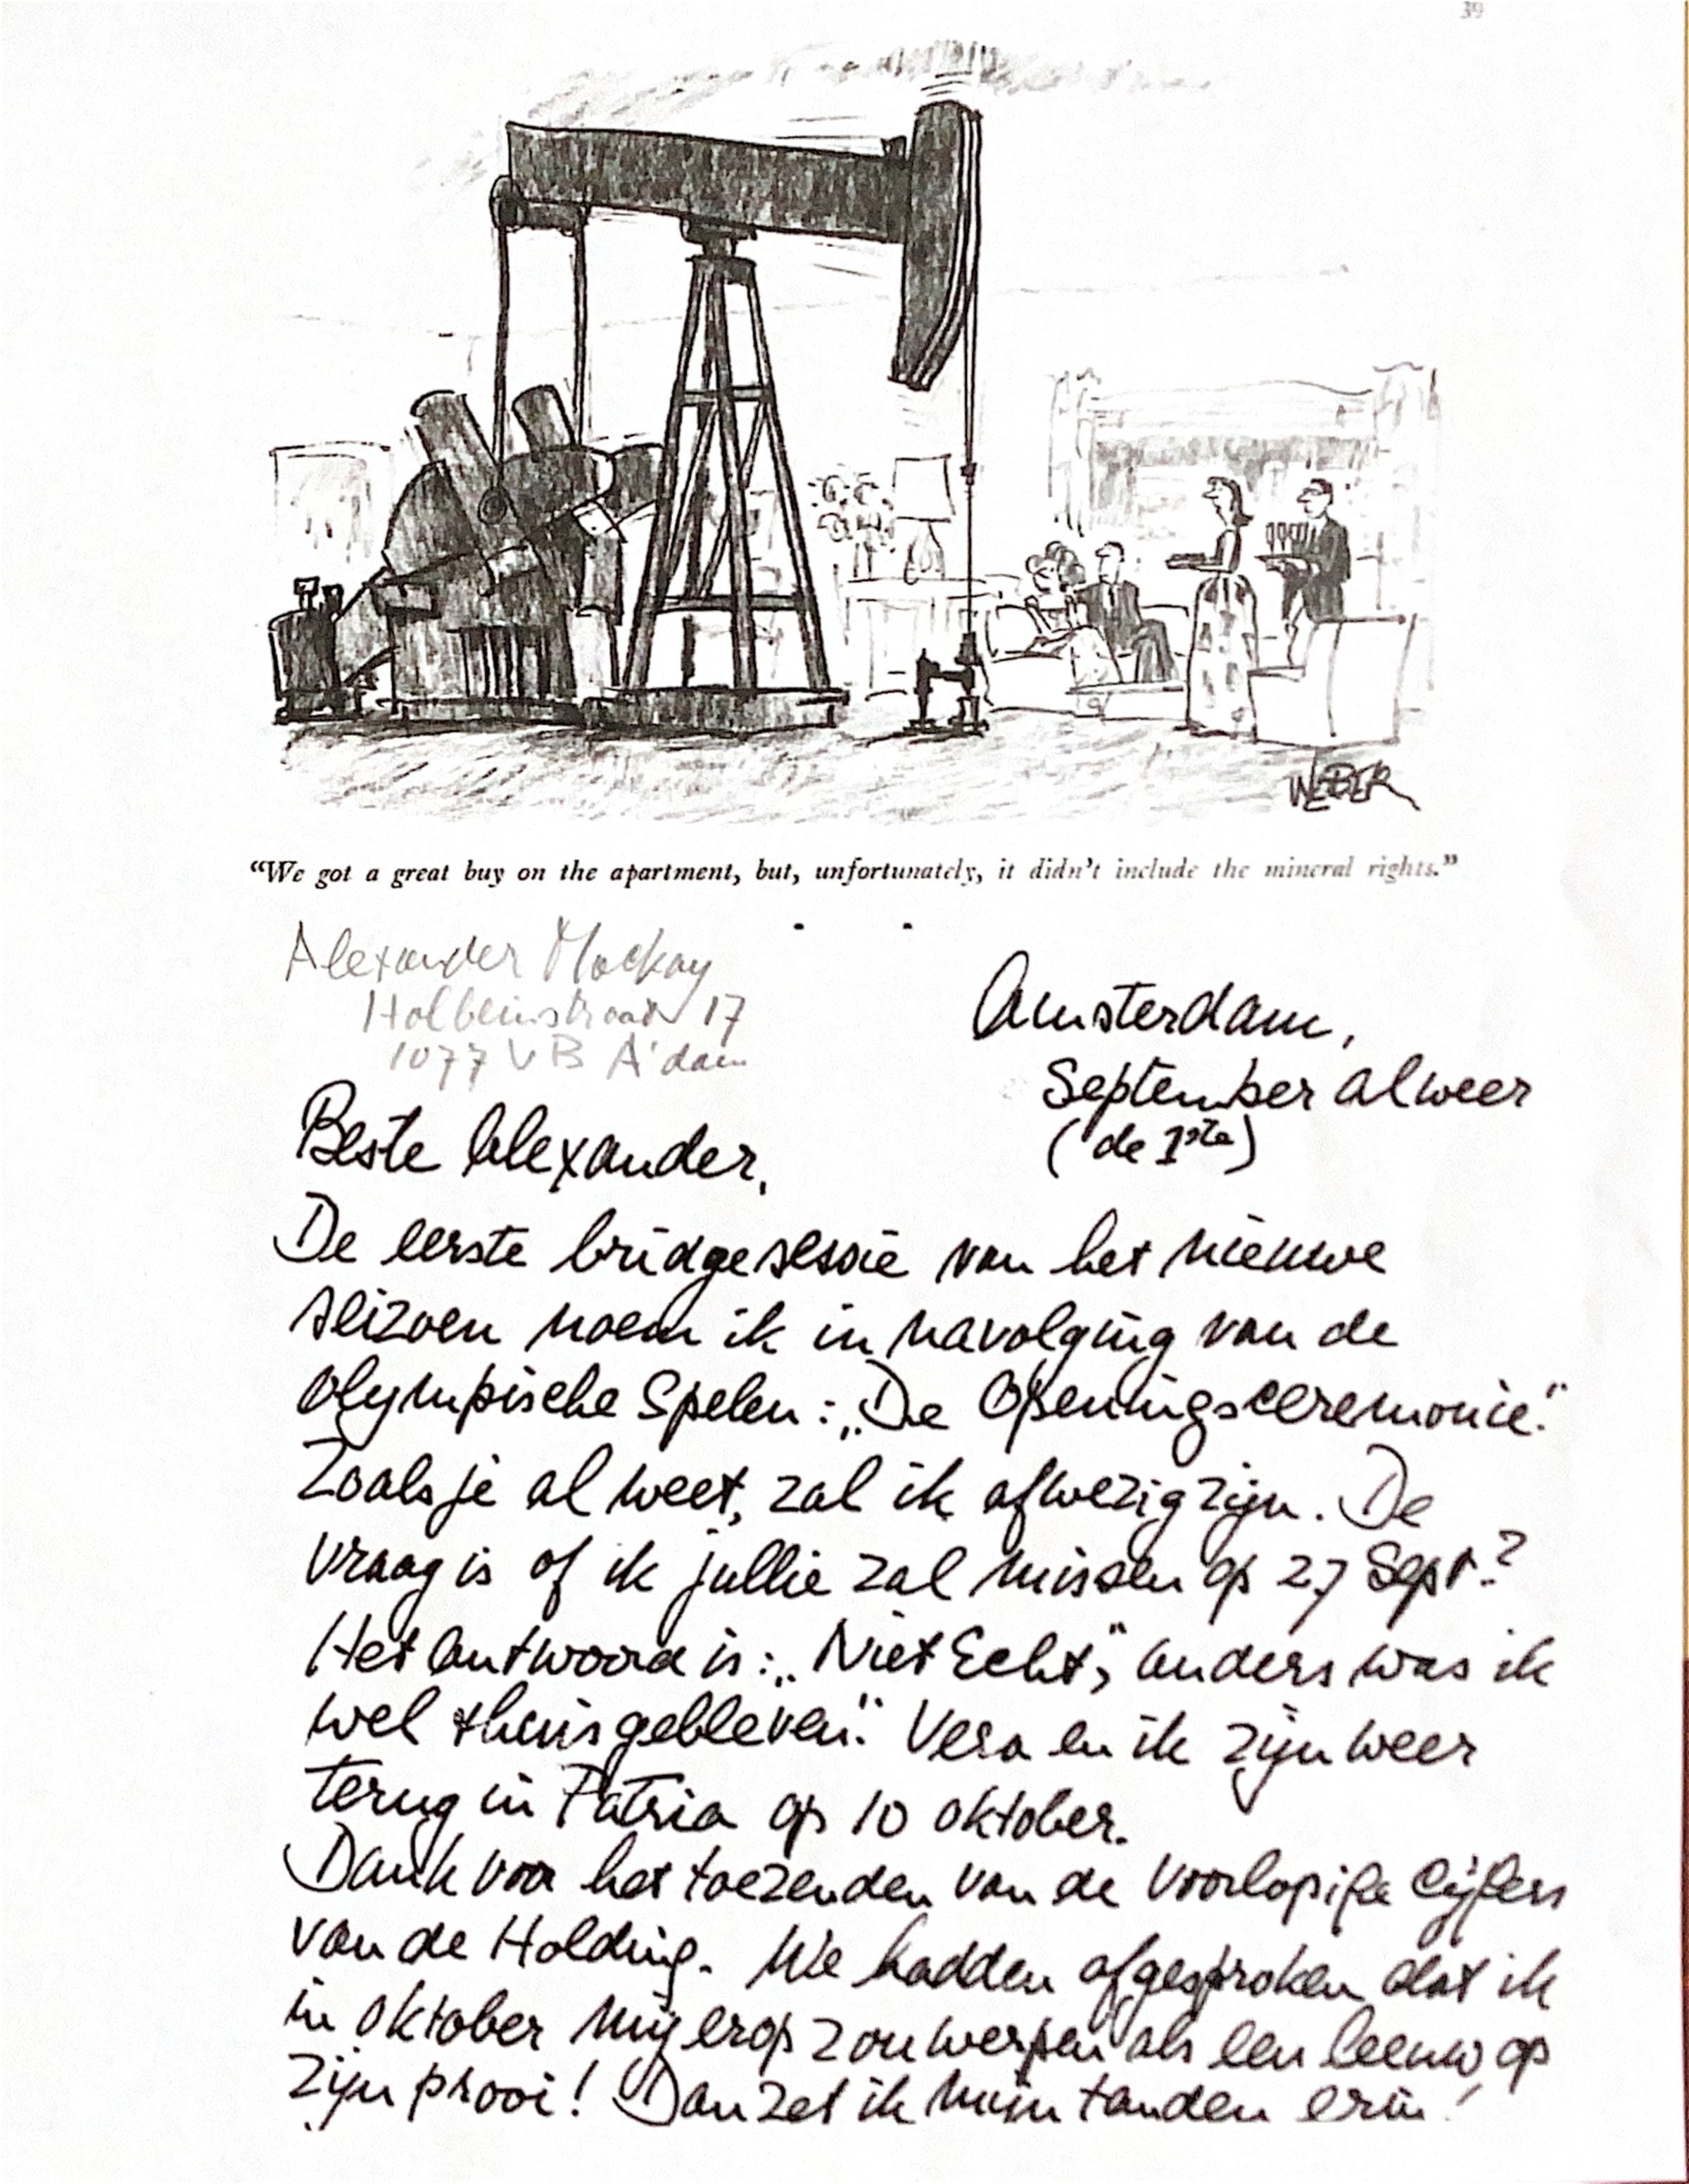 39
WEBER
“We got a great buy on the apartment, but, unfortunately, it didn’t include the mineral rights.”
Alexander Mackay
Holbeinstraat 17
1077 VB A'dam
Amsterdam,
September alweer
(de 1ste)
Beste Alexander,
De eerste bridgesessie van het nieuwe
seizoen noem ik in navolging van de
Olympische Spelen: „De Openingsceremonie."
Zoals je al weet, zal ik afwezig zijn. De
vraag is of ik jullie zal missen op 27 Sept.?
Het antwoord is: „Niet Echt", anders was ik
wel thuisgebleven." Vera en ik zijn weer
terug in Patria op 10 oktober.
Dank voor het toezenden van de voorlopige cijfers
van de Holding. We hadden afgesproken dat ik
in oktober mij erop zou werpen als een leeuw op
zijn prooi! Dan zet ik mijn tanden erin!